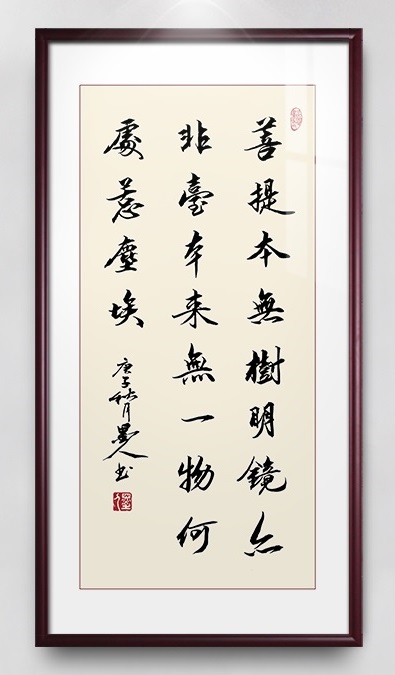 菩提本無樹明鏡亦
非臺本来無一物何
處惹塵埃
庚子秋月墨人书